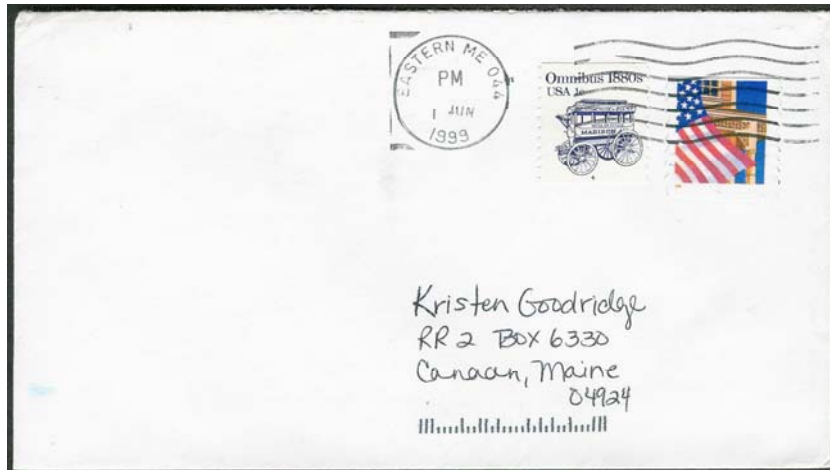 EASTERN ME 044
PM
1 JUN
1999
Omnibus 1880s
USA 1c
MADISON
4
Kristen Goodridge
RR 2 Box 6330
Canaan, Maine
04924